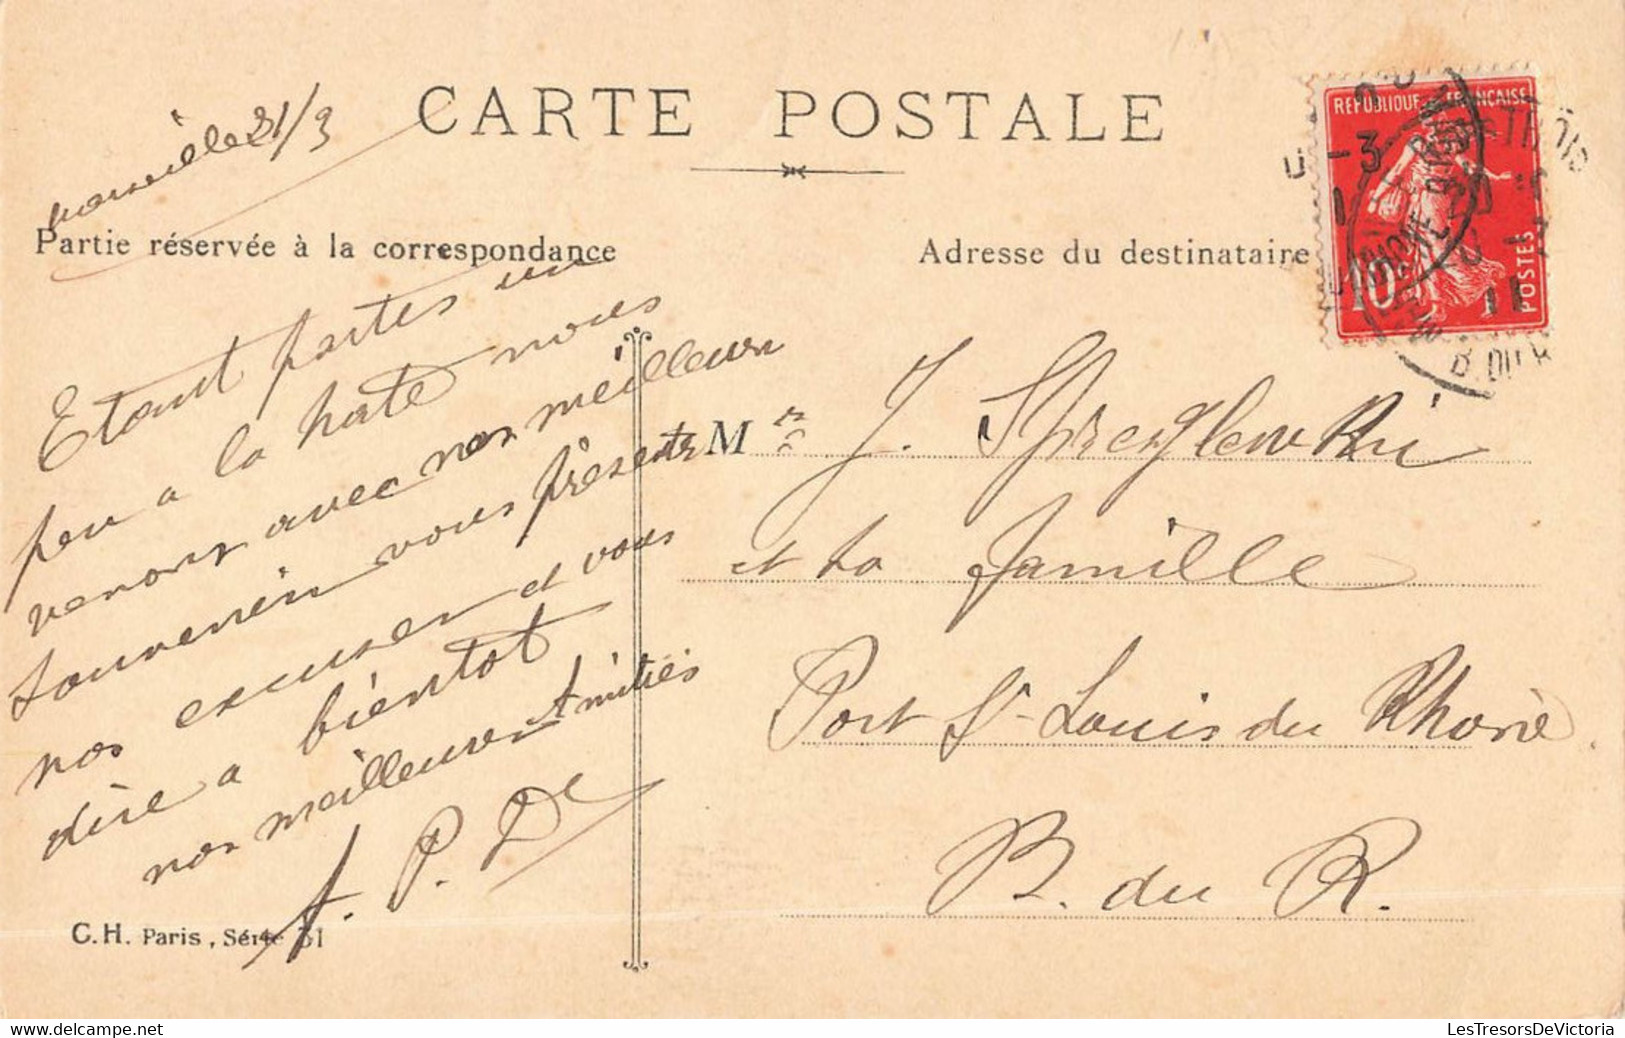 CARTE POSTALE
marseille 21/3
Partie réservée à la correspondance
Adresse du destinataire
REPUBLIQUE FRANÇAISE
10
POSTES
Etant partes un
peu a la hate nous
venons avec nos meilleurs
souvenirs vous présenter
nos excuses et vous
dire a bientot
nos meilleures Amitiés
A. P. D
C.H. Paris, Série 31
M
J.
et la famille
Port St Louis du Rhone
B. du R.
LesTresorsDeVictoria